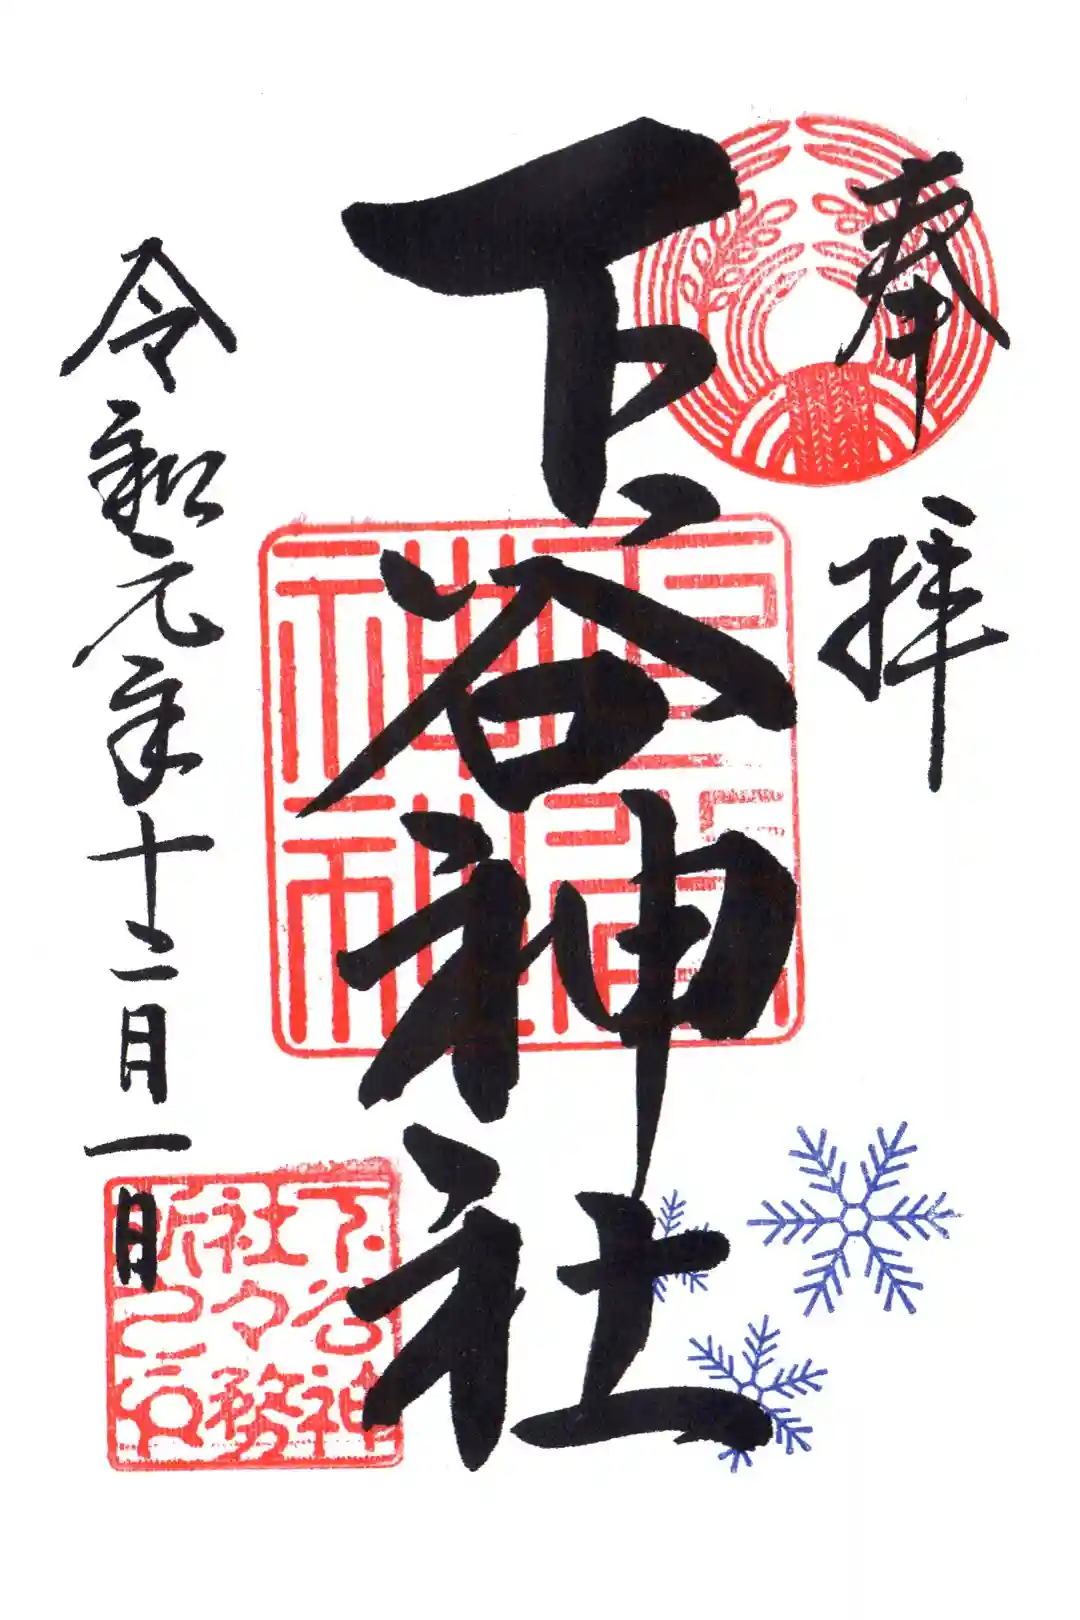 奉拝
下谷神社
令和元年十二月一日
下谷神
社々務
所之印